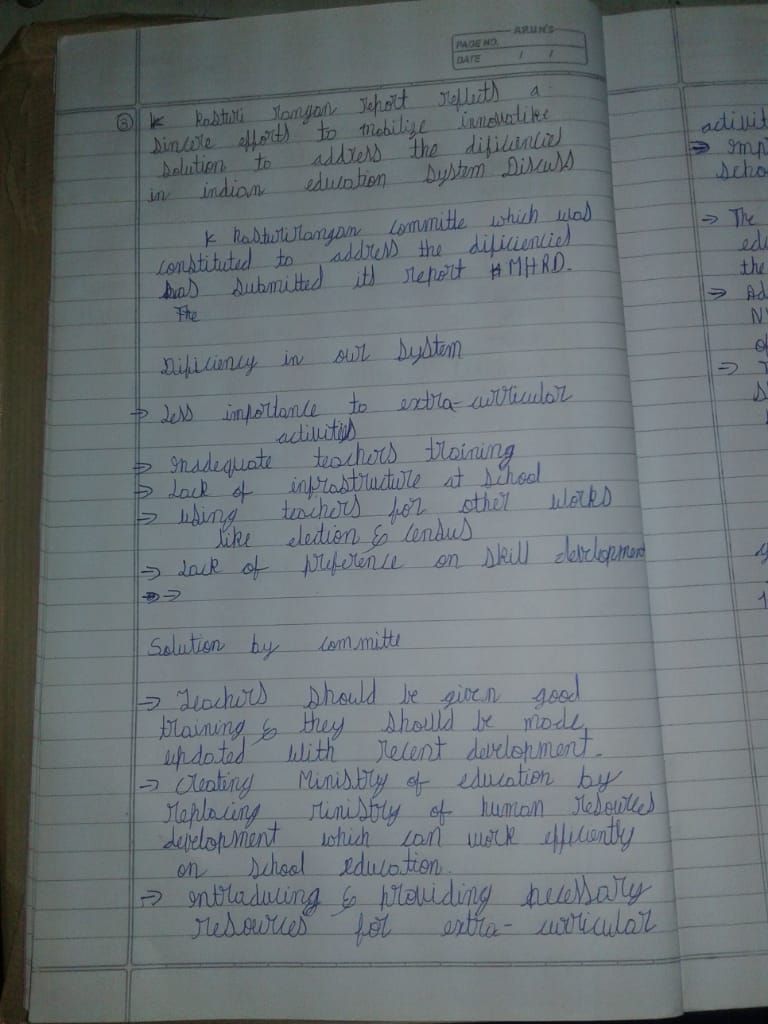 ARUN'S
PAGE NO.
DATE / /
③ K Kasturi rangan report reflects a
sincere efforts to mobilize innovatike
solution to address the dificiencies
in indian education system Discuss
K Kasturirangan committe which was
constituted to address the dificiencies
has submitted its report MHRD.
The
Dificiency in our system
→ Less importance to extra-curricular
activities
⇒ Inadequate teachers training
⇒ Lack of infrastructure at school
⇒ using teachers for other works
like election & census
⇒ Lack of preference on skill development
⇒ ⇒
Solution by committe
→ Teachers should be given good
training & they should be made
updated with recent development.
→ Creating Ministry of education by
replacing ministry of human resources
development which can work efficiently
on school education.
→ Intraducing & providing necessary
resources for extra-curricular
activit
⇒ Imp
scho
⇒ The
edu
the
⇒ Ad
N
of
⇒